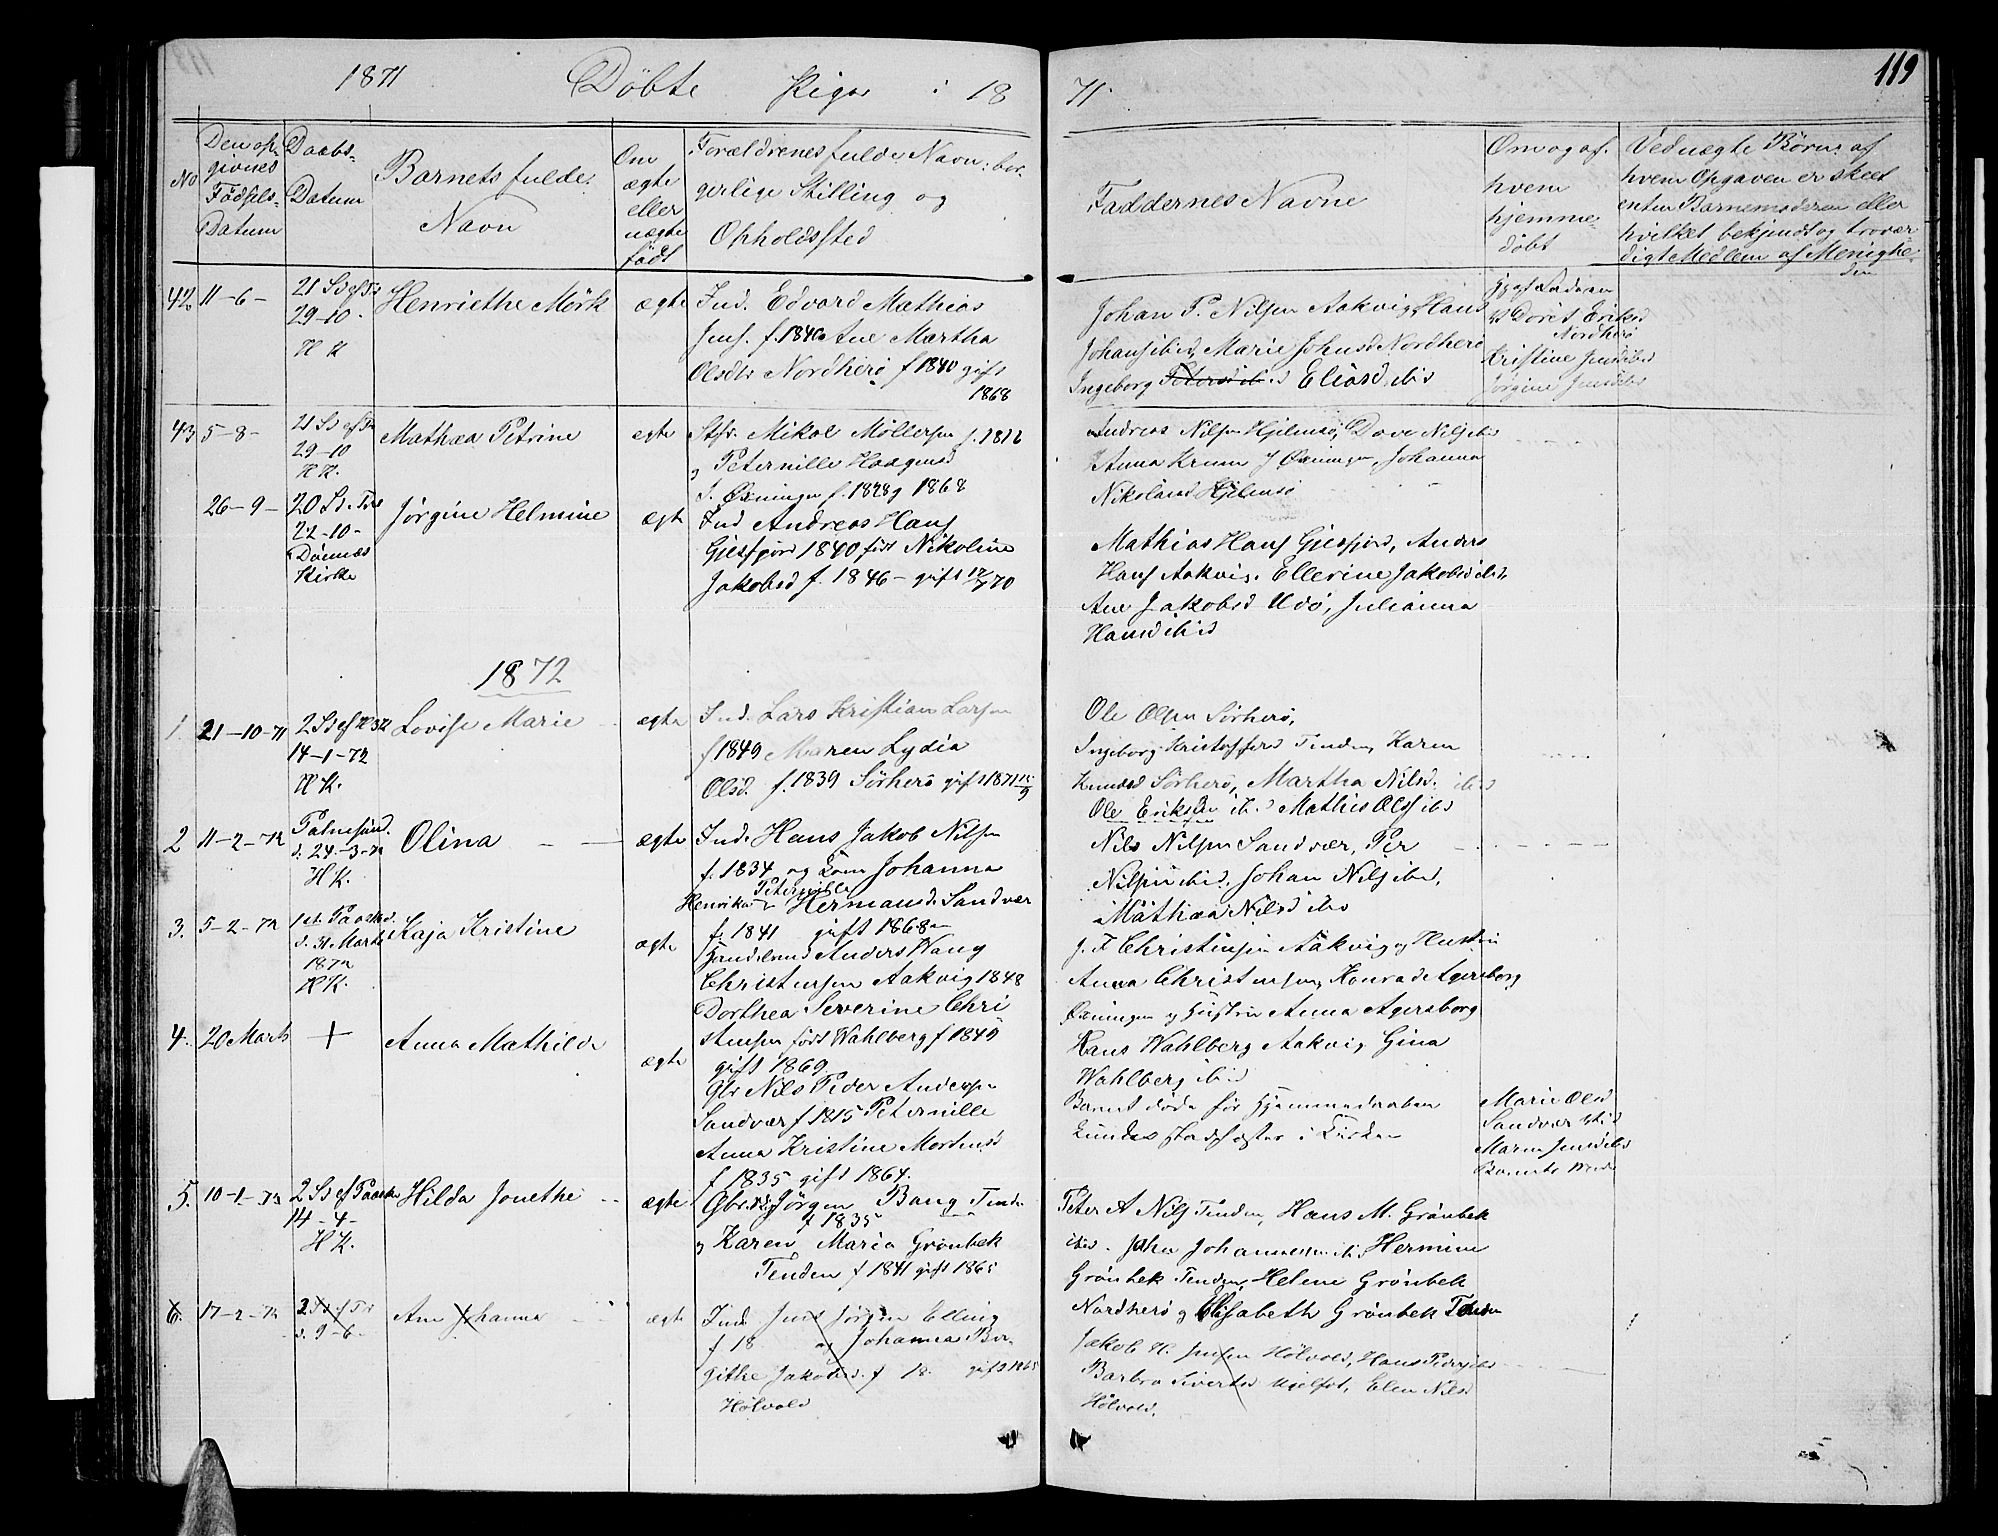 1871 Döbte Piger i 18
71.
119
No
Den op-
givnes
Födsels-
Datum
Daabs-
Datum
Barnets fulde
Navn
Om
ægte
eller
uægte
født
Forældrenes fulde Navn, bor-
gerlige Stilling og
Opholdsted
Faddernes Navne
Om og af
hvem
hjemme-
döbt
Ved uægte Börn: af
hvem Opgaven er skeet
enten Barnemoderen eller
hvilket bekjendt og trovær-
digt Medlem af Menighe-
den
42 11-6- 21 S ef Tr
29-10-
H K
Henriethe Mörk ægte
Ind. Edvard Mathias
Jens. f. 1840 Ane Martha
Olsdtr Nordherö f 1840 gift
1868
Johan P. Nilsen Aakvig, Hans
Johans ibid, Marie Johnsd Nordherö
Ingeborg Petersd ibid Eliasd ibid
Doret Eriksd
Nordherö
Kristine Jensd ibid
Jörgine Jensd ibid
43 5-8- 21 S ef Tr
29-10
H K.
Mathea Petrine ægte
Mikal Möllersen f. 1816
og Peternille Haagensd
Öxningen f. 1828 g 1868
Andreas Nilsen Hjelmsö,
Anna Öxningen, Johanna
Nikolaisd Hjelmsö
26-9- 20 S. Tr
22-10-
Dönnæs
Kirke
Jörgine Helmine ægte
Ind Andreas Hans
Gjesfjord 1840 født Nikoline
Jakobsd f. 1846 - gift 70
Mathias Hans Gjesfjord, Anders
Hans Aakvig, Ellerine Jakobsd ibid,
Ane Jakobsd Udö, Julianna
Hansd ibid
1872
1 21-10-71 2 S ef H 3 K
14-1-72
H K.
Lovise Marie ægte
Ind. Lars Kristian Larsen
f 1849 Maren Lydia
Olsd. f. 1839 Sörherö gift 1871
Ole Olsen Sörherö,
Ingeborg Kristoffersd Tenden, Karen
Knudsd Sörherö, Martha Nilsd. ibid
Ole Eriksen ibid Mathis Ols ibid
2 11-2-72 Palmesønd.
d. 24-3-72
H K.
Olina ægte
Ind. Hans Jakob Nilsen
f. 1834 og Kone Johanna
Peternille
Henrika Hermansd. Sandvær
f. 1841 gift 1868
Nils Nilsen Sandvær, Per
Nilsen ibid, Johan Nils ibid,
Mathea Nilsd ibid
3. 5-2-72 1ste Paasked.
d. 31 Marts
1872
H K.
Kaja Kristine ægte
Handelsmd Anders Wang
Christensen Aakvig 1848
Dorthea Severine Chri
stensen født Wahlberg f 1849
gift 1869
J. F Christensen Aakvig og Hustru
Anna Christensen, Konrad Agersborg
Öxningen og Hustru Anna Agersborg
Hans Wahlberg Aakvig Gina
Wahlberg ibid
4. 20 Marts + Anna Mathilde ægte
Gbr Nils Peder Andersen
Sandvær f 1815 Peternille
Anna Kristine Mortensd
f 1835 gift 1864.
Barnet döde för Hjemmedaaben
kunde stadfæstes i Kirken
Marie Olsd
Sandvær
Maren Jensd ibid
5. 10-1-72 2 S ef Paaske
14-4-
H K.
Hilda Jonethe ægte
Gbr. Jörgen Bang Tenden
f 1835
og Karen Maria Grönbek
Tenden f 1841 gift 1865
Peter A Nils Tenden, Hans M. Grönbek
ibid. John Johannesen ibid Hermine
Grönbek Tenden, Helene Grönbek
Nordherö og Elisabeth Grönbek Tenden
6. 17-2-72 2 S ef Tr
d. 9-6-
Ane Johanna ægte
Ind Jens Jörgen Elling
f 18 og Johanna Ber-
githe Jakobsd. f 18. gift 1865
Hölvold
Jakob H. Jensen Hölvold, Hans Peders ibid
Barbro Sivertsd, Elen Nilsd
Hölvold.